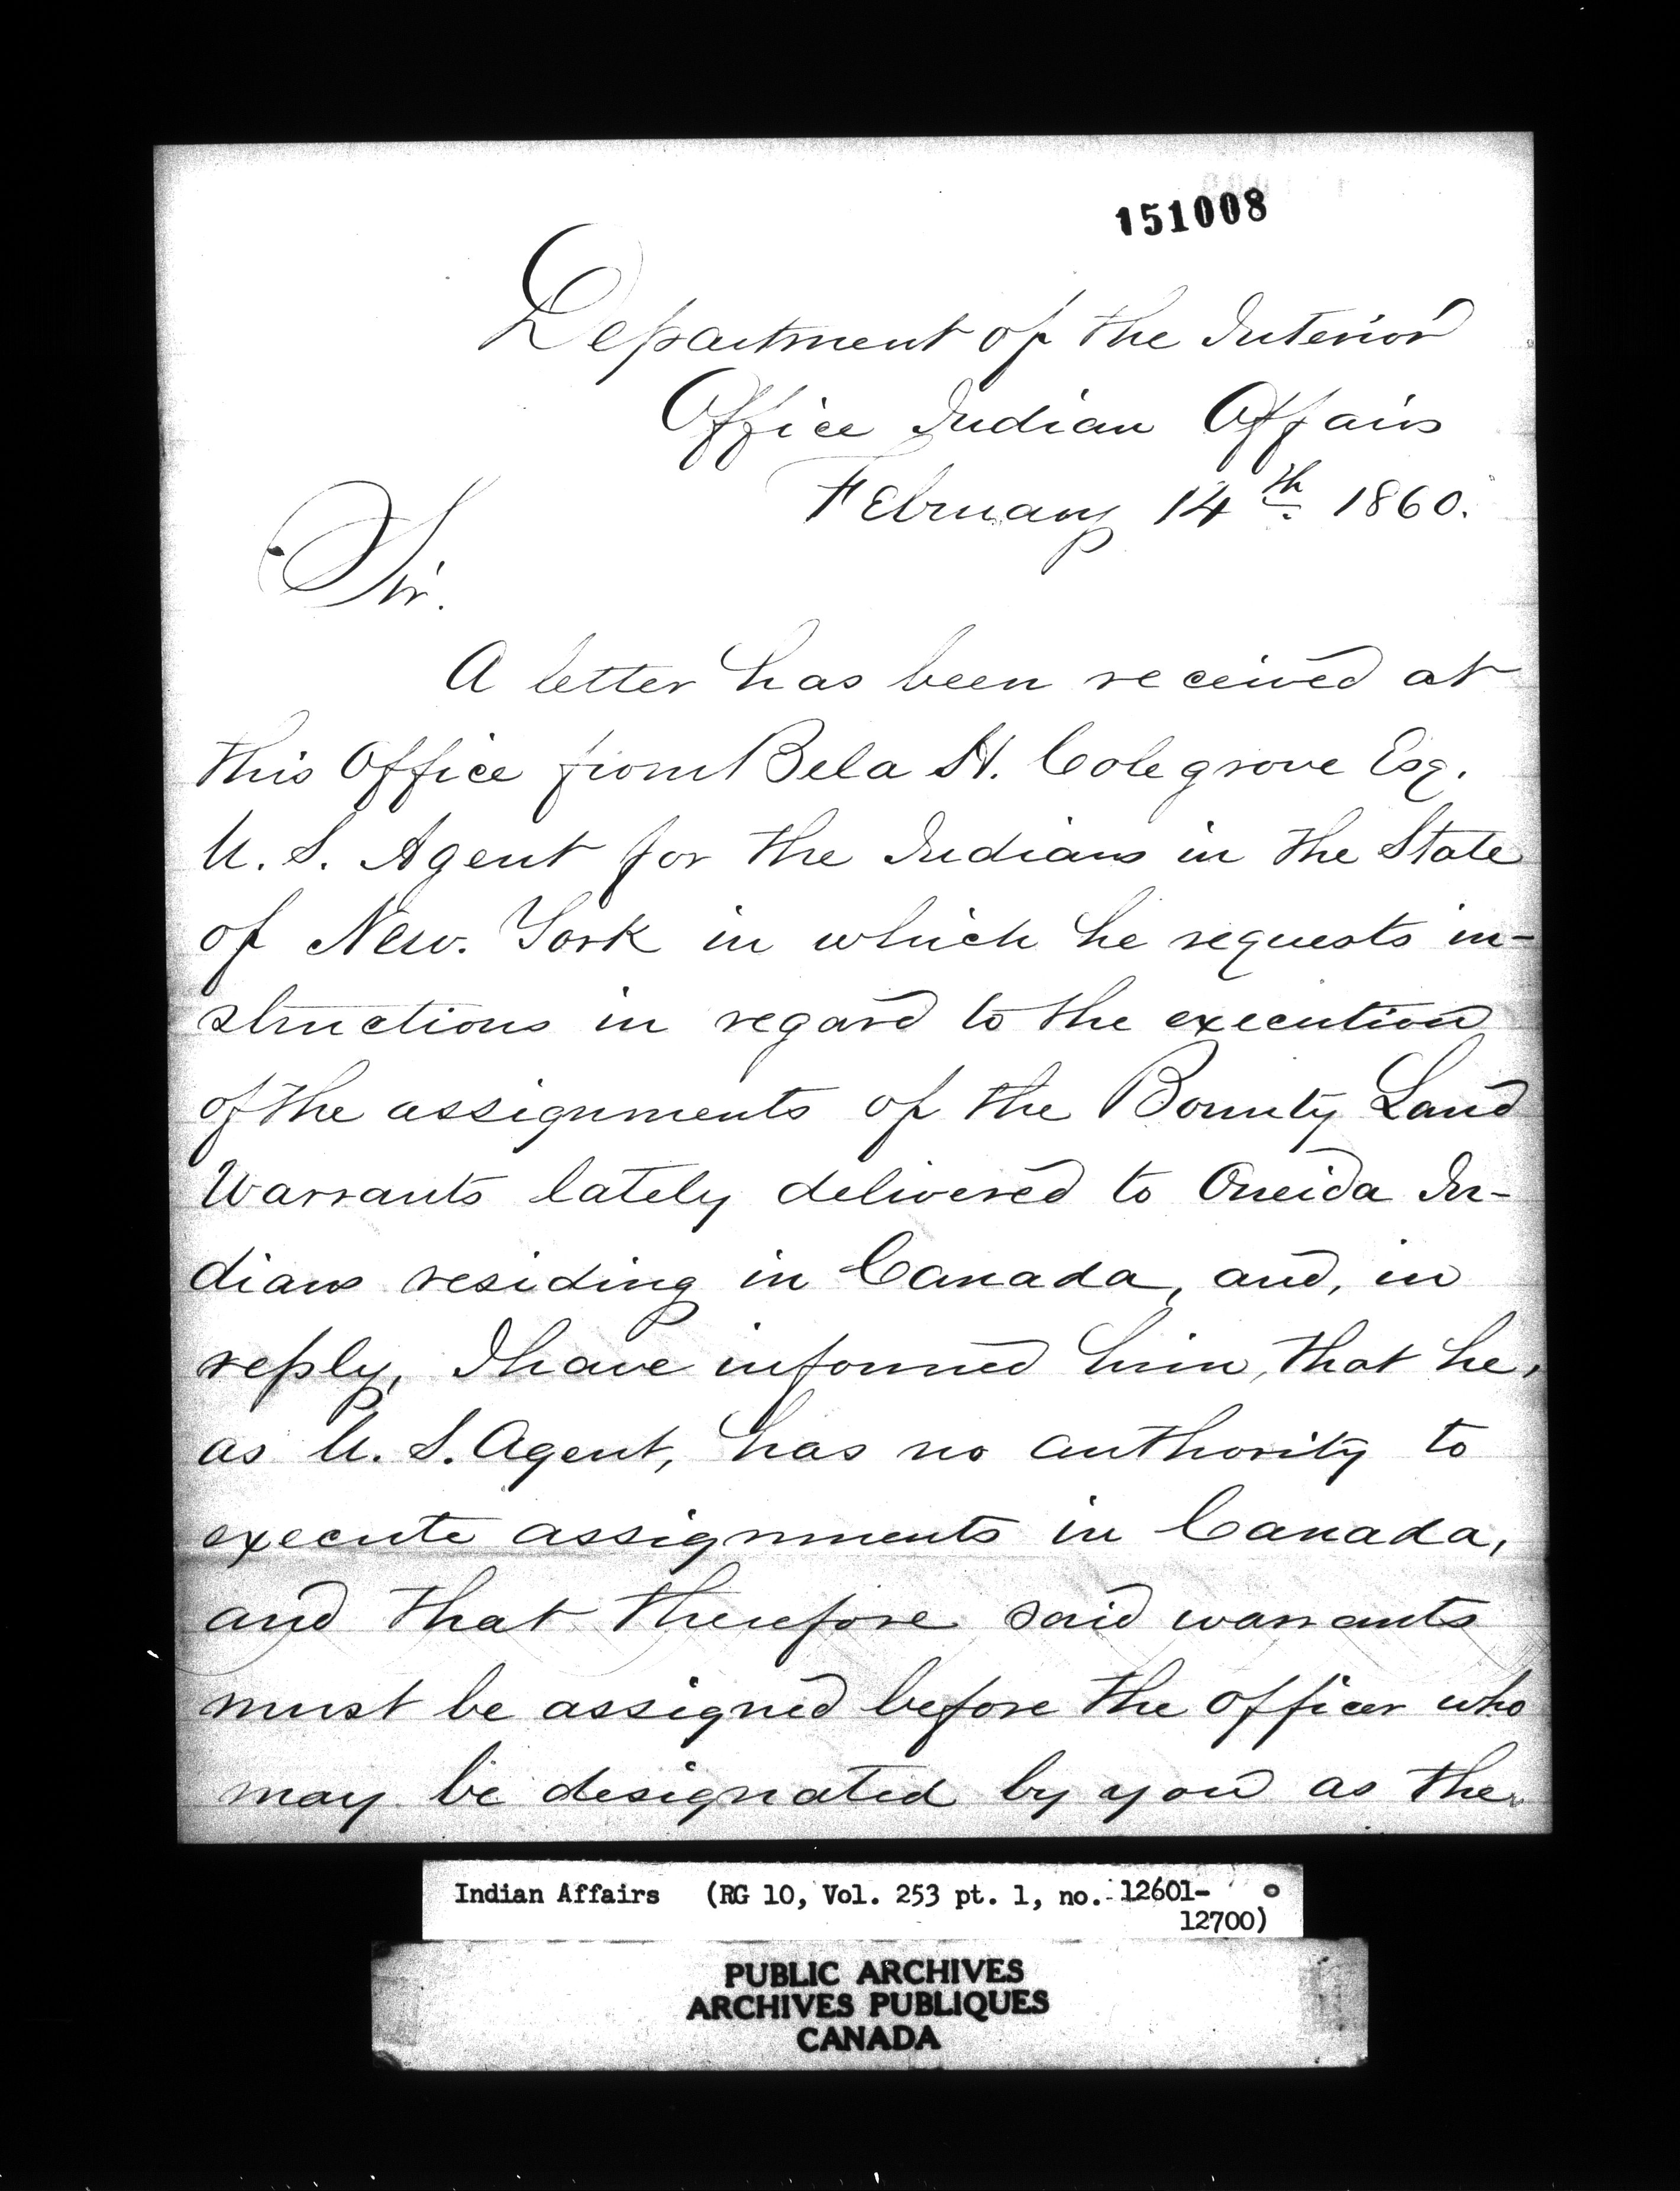 151008
Department of the Interior
Office Indian Affairs
February 14th 1860.
Sir.
A letter has been received at
this Office from Bela H. Colegrove Esq.
U. S. Agent for the Indians in the State
of New. York in which he requests in-
structions in regard to the execution
of the assignments of the Bounty Land
Warrants lately delivered to Oneida In-
dians residing in Canada, and, in
reply, I have informed him, that he,
as U. S. Agent, has no authority to
execute assignments in Canada,
and that therefore said warrants
must be assigned before the officer who
may be designated by you as the
Indian Affairs (RG 10, Vol. 253 pt. 1, no. 12601-
12700)
PUBLIC ARCHIVES
ARCHIVES PUBLIQUES
CANADA